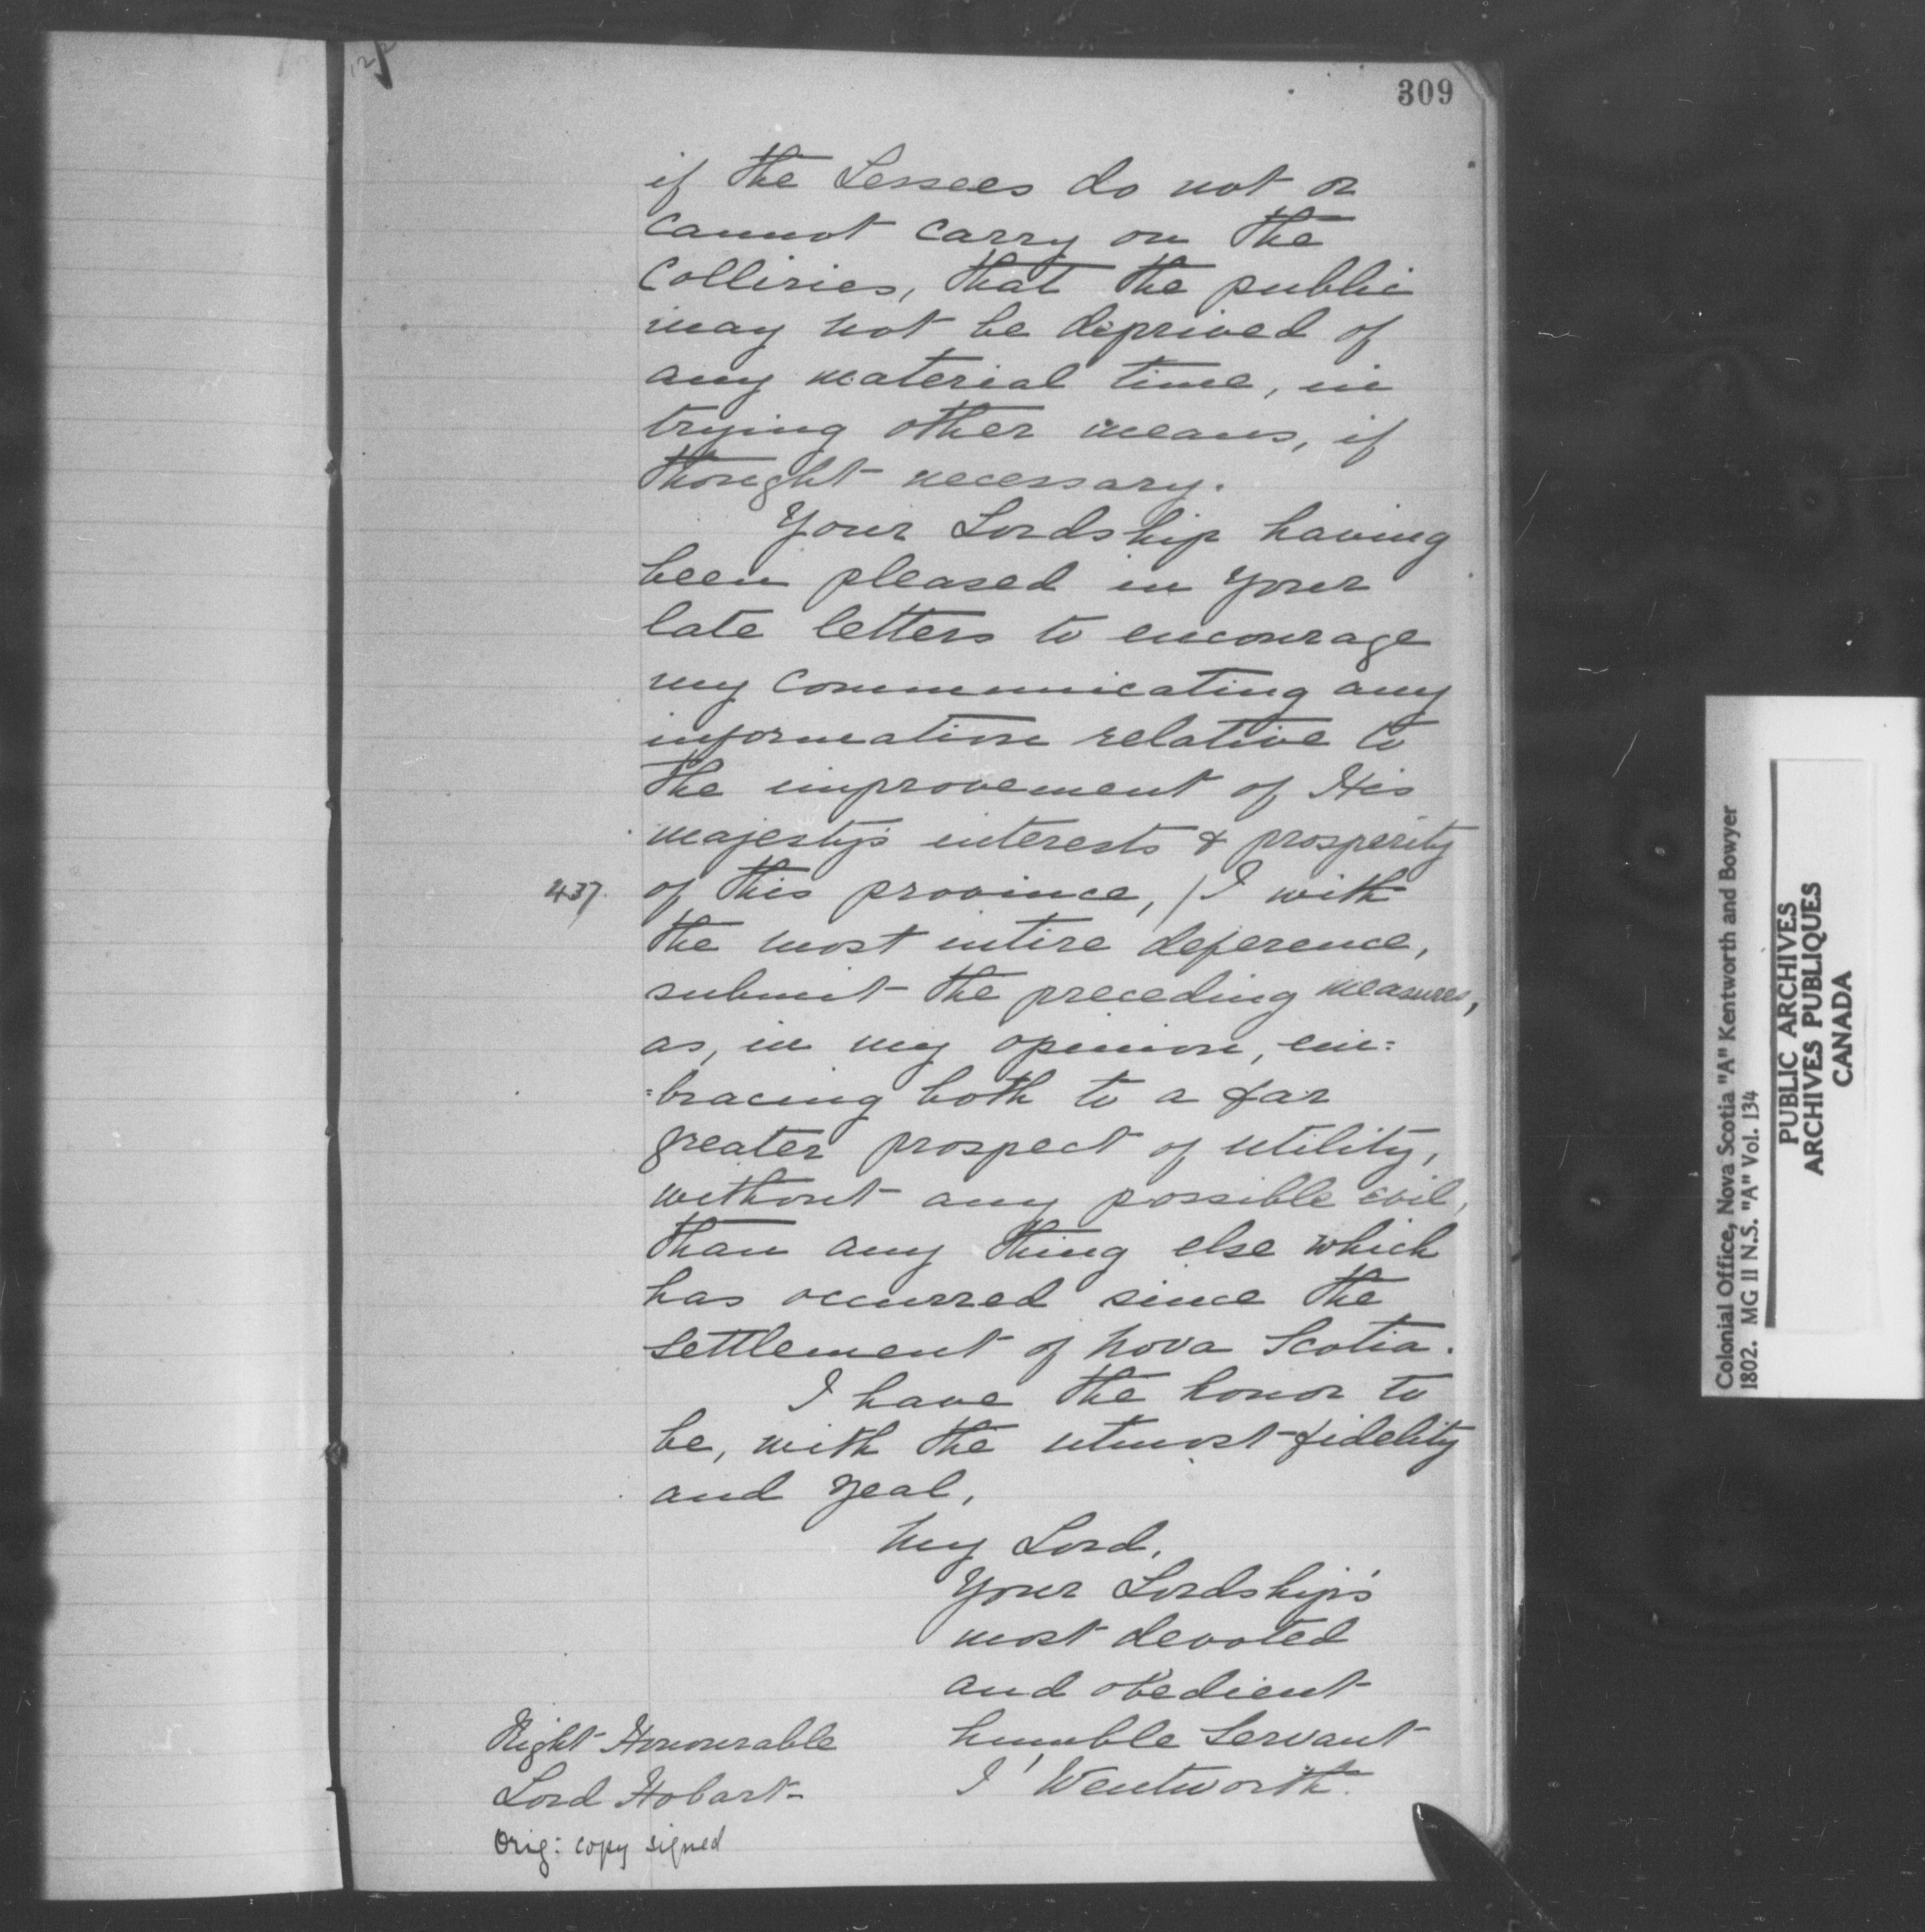 309
if the Lessees do not or
cannot carry on the
Colliries, that the public
may not be deprived of
any material time, in
trying other means, if
thought necessary.
Your Lordship having
been pleased in your
late letters to encourage
my communicating any
information relative to
the improvement of His
majesty's interests & prosperity
437. of this province, / I with
the most intire deference,
submit the preceding measures,
as, in my opinion, em=
=bracing both to a far
greater prospect of utility,
without any possible evil,
than any thing else which
has occurred since the
settlement of Nova Scotia.
I have the honor to
be, with the utmost fidelity
and zeal,
My Lord,
Your Lordship's
most devoted
and obedient
humble Servant
J Wentworth.
Right Honourable
Lord Hobart
Orig: copy signed
Colonial Office, Nova Scotia "A" Kentworth and Bowyer
1802. MG 11 N.S. "A" Vol. 134
PUBLIC ARCHIVES
ARCHIVES PUBLIQUES
CANADA